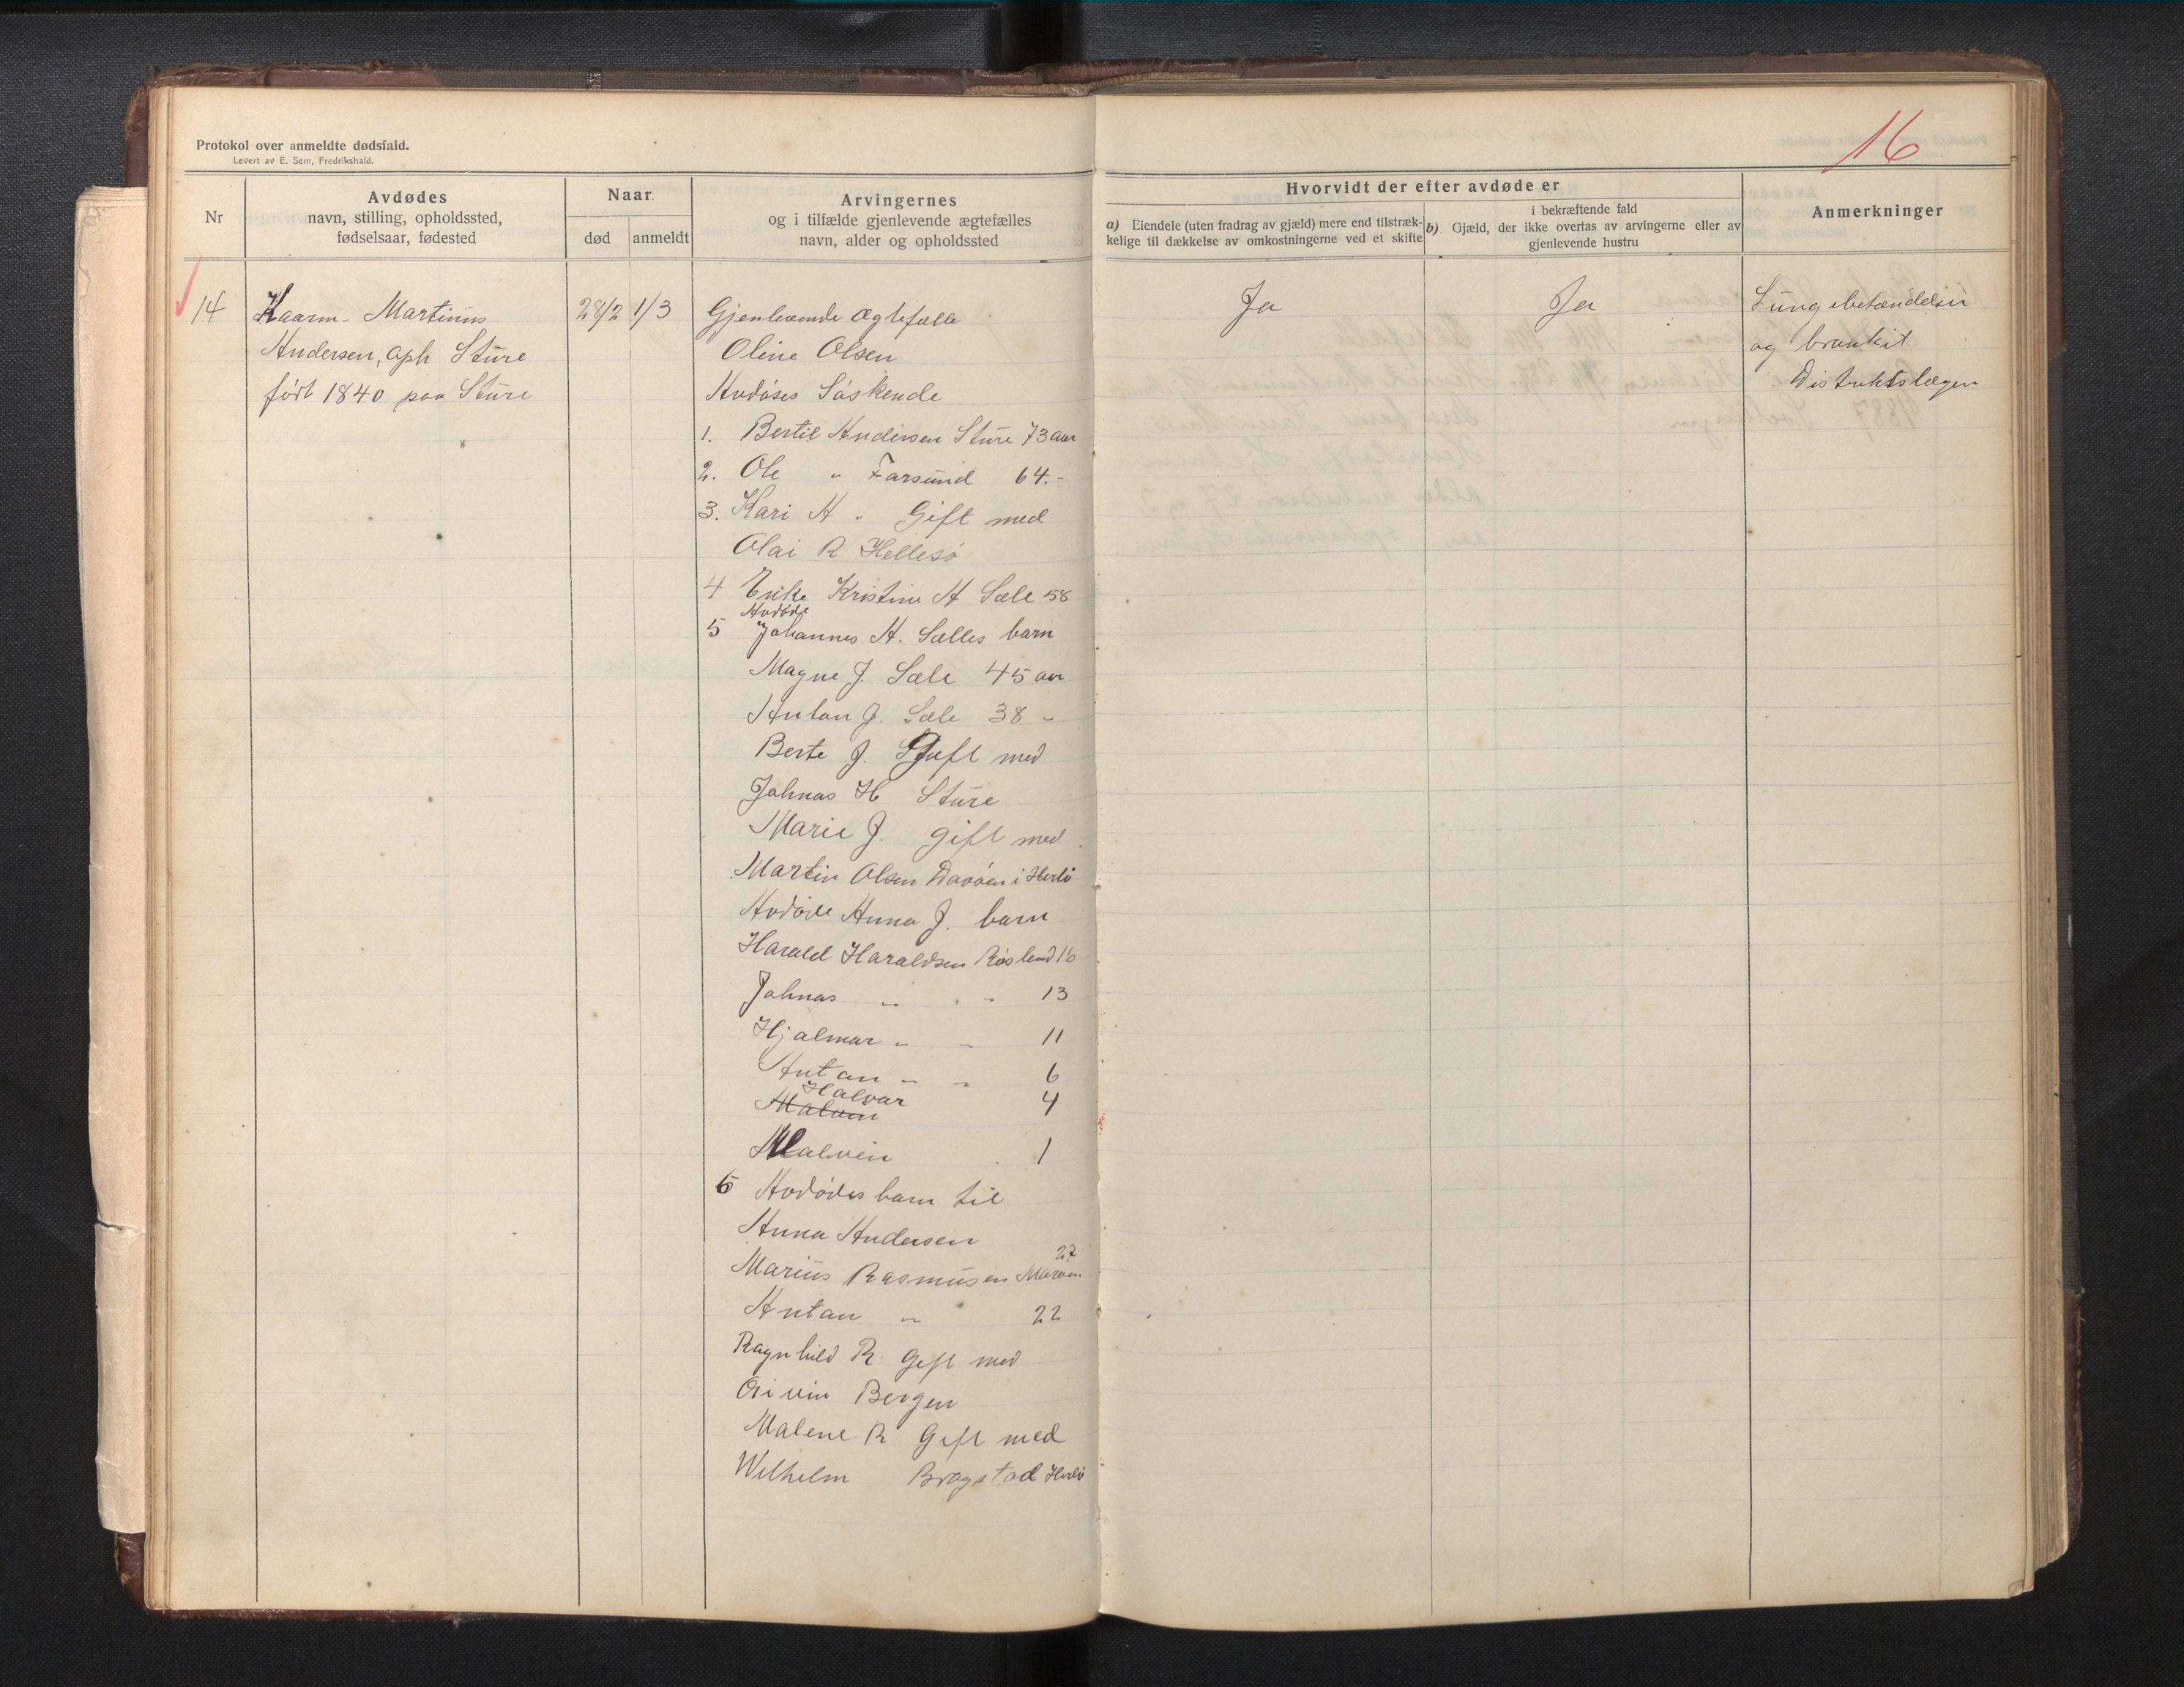 Protokol over anmeldte dødsfald.
Levert av E. Sem, Fredrikshald.
16
Nr
Avdødes
navn, stilling, opholdssted,
fødselsaar, fødested
Naar
død
anmeldt
Arvingernes
og i tilfælde gjenlevende ægtefælles
navn, alder og opholdssted
Hvorvidt der efter avdøde er
a) Eiendele (uten fradrag av gjæld) mere end tilstræk-
kelige til dækkelse av omkostningerne ved et skifte
i bekræftende fald
b) Gjæld, der ikke overtas av arvingerne eller av
gjenlevende hustru
Anmerkninger
14
Kaarm. Martinus
Andersen, oph Sture
født 1840 paa Sture
28/2
1/3
Gjenlevende Ægtefælle
Oline Olsen
Avdøses Søskende
1. Bertil Andersen Sture 73 aar
2. Ole " Farsund 64.-
3. Kari A " Gift med
Olai R Hellesø
4 Erike Kristine A Sæle 58
Avdøde
5 Johannes A. Sælles barn
Magne J. Sæle 45 aar
Anton J. Sæle 38 "
Berte J. Gift med
Johnas H Sture
Marie J. gift med
Martin Olsen Davøen i Herlø
Avdøde Anna J. barn
Harald Haraldsen Røsland 16
Johnas " " 13
Hjalmar " " 11
Antan " " 6
Halvar 4
Malvin
Malvin 1
6 Avdødes barn til
Anna Andersen
27
Marius Rasmusen Marøen
Antan " " 22
Ragnhild R. Gift med
Eivin Bergen
Malene R Gift med
Wilhelm Bragstad Herlø
Ja
Ja
Lungebetændelse
og bronkit
Distriktslægen